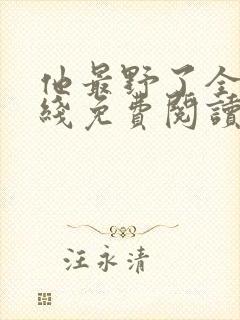 他最野了全
綫免費閱讀
汪永清